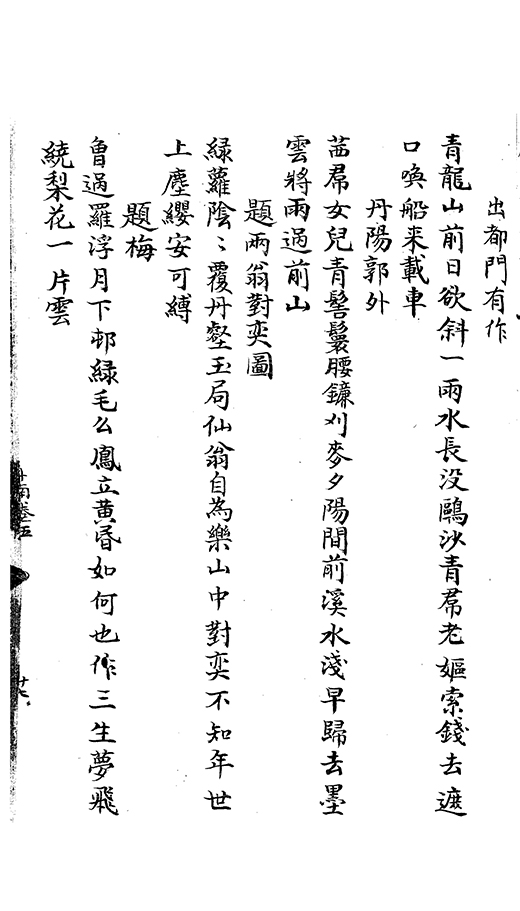 出都門有作
青龍山前日欲斜一雨水長没鷗沙青帬老嫗索錢去遮
口喚船来載車
丹陽郭外
茁帬女兒青髻鬟腰鐮刈麥夕陽間前溪水淺早歸去墨
雲將雨過前山
題兩翁對奕圖
緑蘿陰〻覆丹壑玉局仙翁自為樂山中對奕不知年世
上塵纓安可縛
題梅
曽過羅浮月下邨緑毛么鳳立黄昏如何也作三生夢飛
繞梨花一片雲
卷五
十七